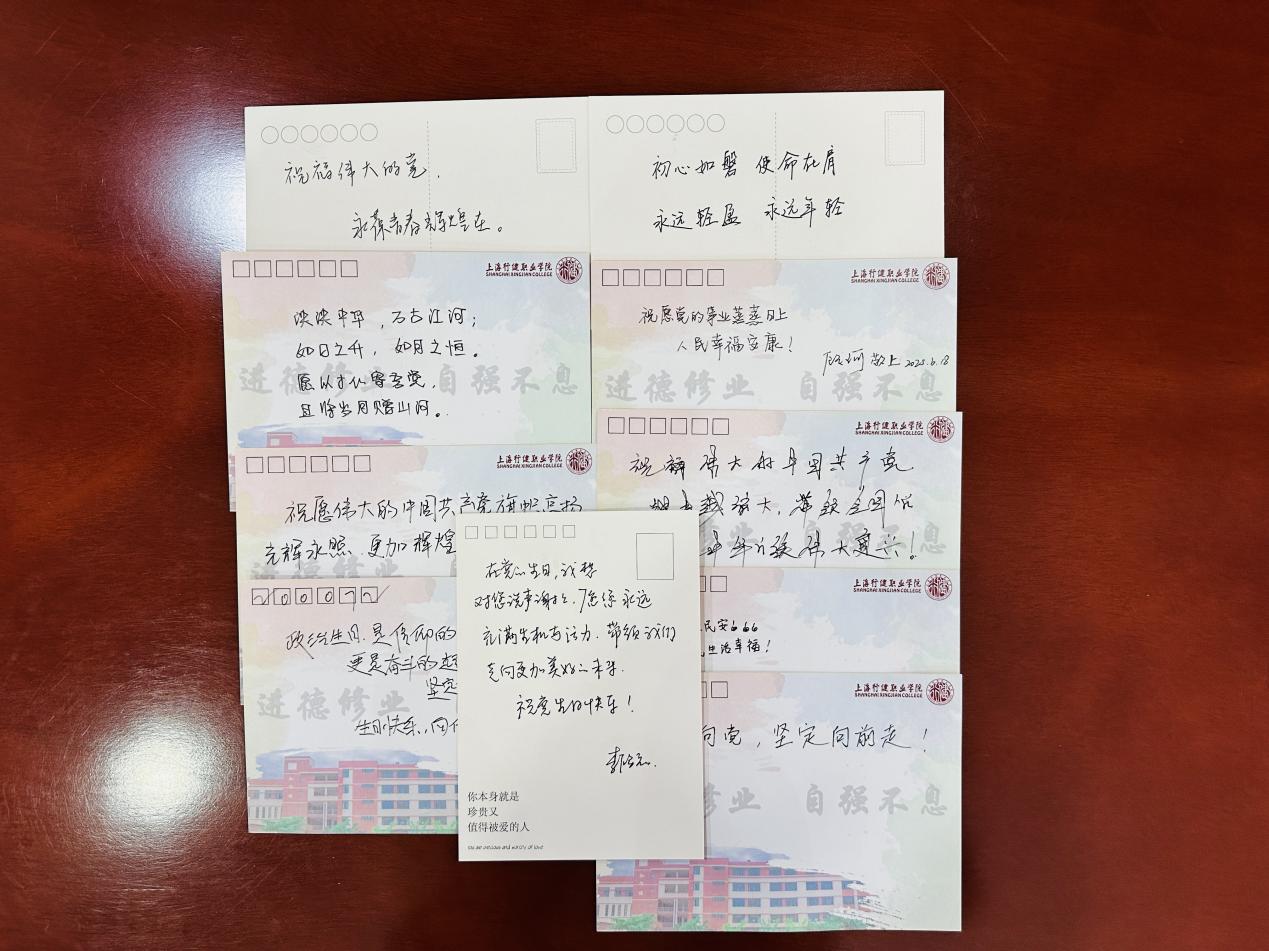 祝福伟大的党，
永葆青春辉煌在。
初心如磐 使命在肩
永远轻盈 永远年轻
上海行健职业学院
SHANGHAI XINGJIAN COLLEGE
泱泱中华，万古江河；
如日之升，如月之恒。
愿以寸心寄吾党，
且将岁月赠山河。
进德修业 自强不息
上海行健职业学院
SHANGHAI XINGJIAN COLLEGE
祝愿党的事业蒸蒸日上
人民幸福安康！
敬上 2025.6.18
进德修业 自强不息
上海行健职业学院
SHANGHAI XINGJIAN COLLEGE
祝愿伟大的中国共产党旗帜高扬
光辉永照 更加辉煌
上海行健职业学院
SHANGHAI XINGJIAN COLLEGE
伟大的中国共产党
越强大，带领全国
年 伟大复兴！
200072
政治生日，是信仰的
更是奋斗的
坚定
生日快乐，
进德修业
上海行健职业学院
SHANGHAI XINGJIAN COLLEGE
民安666
生活幸福！
上海行健职业学院
SHANGHAI XINGJIAN COLLEGE
向党，坚定向前走！
修业 自强不息
在党的生日，我想
对您说声谢谢，愿您永远
充满生机与活力，带领我们
走向更加美好的未来。
祝党生日快乐！
你本身就是
珍贵又
值得被爱的人
You are precious and worthy of love